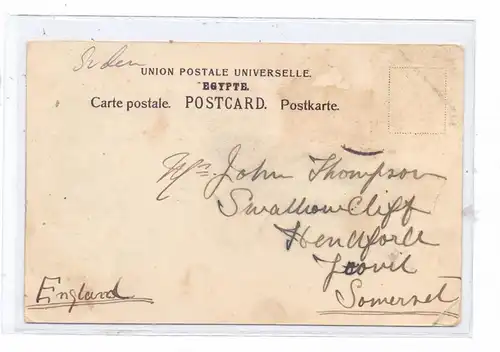 UNION POSTALE UNIVERSELLE.
EGYPTE.
Carte postale. POSTCARD. Postkarte.
Mrs John Thompson
Swallow Cliff
Hendford
Yeovil
Somerset
England